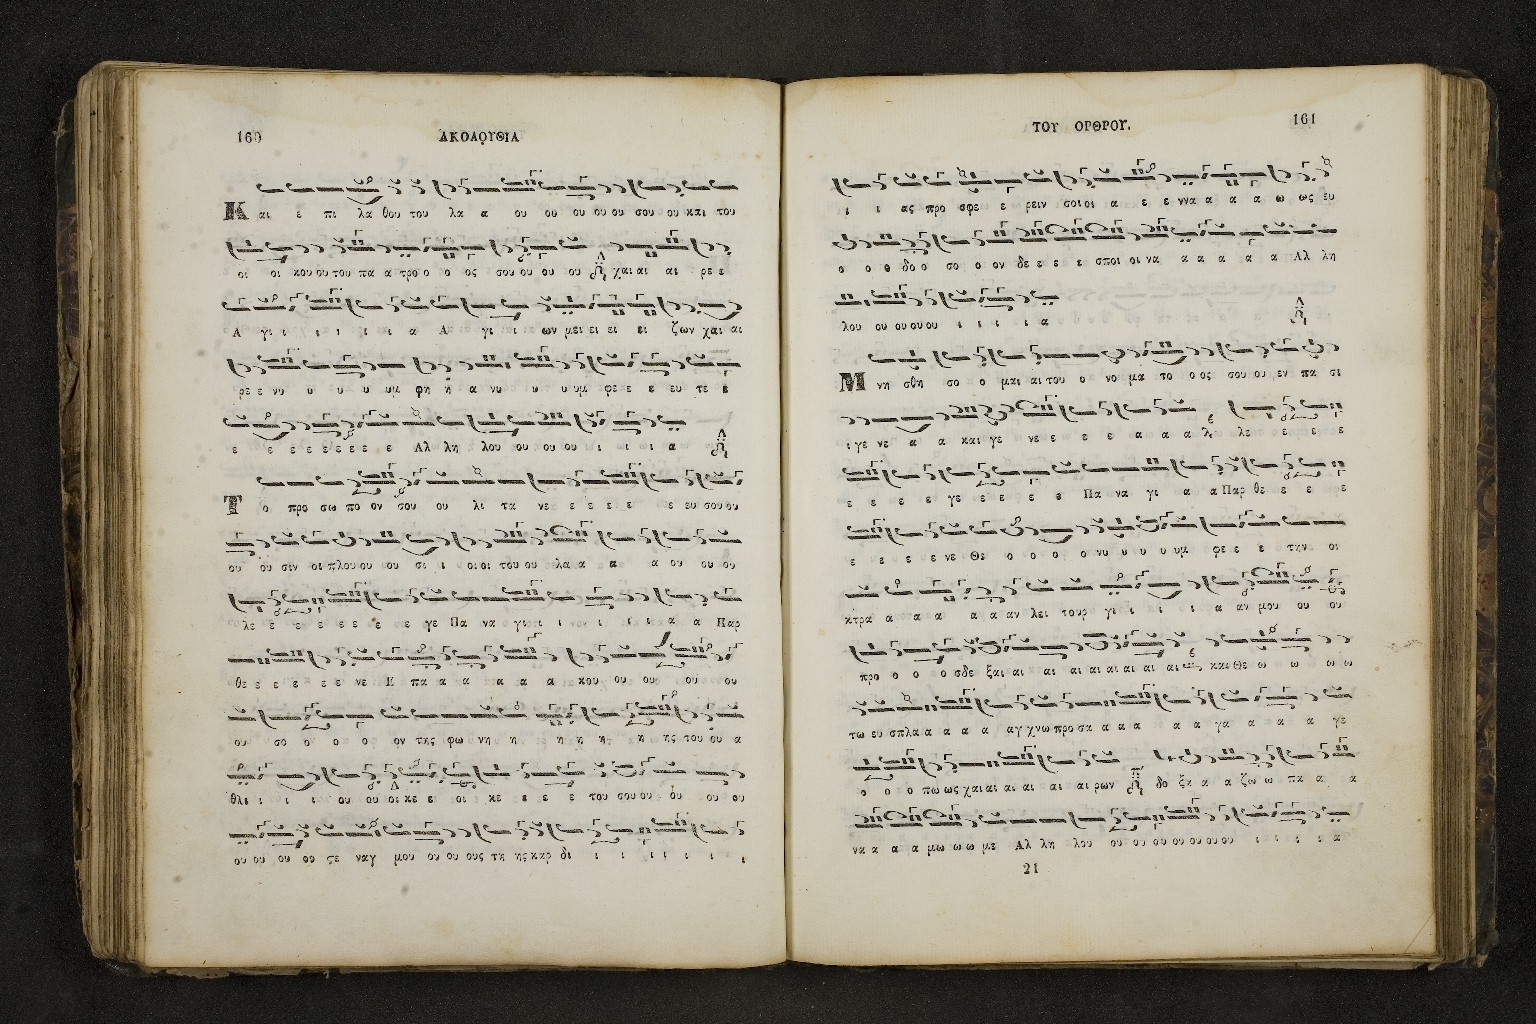 160
ΑΚΟΛΟΥΘΙΑ
Και ε πι λα θου του λα α ου ου ου ου ου σου ου και του
οι οι κου ου του πα α τρο ο ο ος σου ου ου ου χαι αι αι ρε ε
Α γι ι ι ι ι ι α Α γι ι ι ων μει ει ει ει ζων χαι αι
ρε ε νυ υ υ υ υμ φη ή α νυ υ υ υμ φε ε ε ευ τε ε
ε ε ε ε ε ε ε ε Αλ λη λου ου ου ου ου ι ι ι ι α
Το προ σω πο ον σου ου λι τα νε ε ε ε ε ε ευ σου ου
ου ου σιν οι πλου ου ου σι ι οι οι του ου λα α α α ου ου ου
λε ε ε ε ε ε ε ε γε Πα να γι ι ι ι ι ι ι α α Παρ
θε ε ε ε ε ε νε Ε πα α α α α α κου ου ου ου ου
ου σο ο ο ο ον της φω νη η η η η η ης του ου α
θλι ι ι ι ου ου οι κε ε οι κε ε ε ε του σου ου ου ου ου
ου ου ου ου ϛε ναγ μου ου ου ους τη ης καρ δι ι ι ι ι ι ι ι
161
ΤΟΥ ΟΡΘΡΟΥ.
ι ι ας προ σφε ε ρειν σοι οι α ε ε ννα α α α ω ως ευ
ο ο ο δο ο σο ο ον δε ε ε ε σποι οι να α α α α α Αλ λη
λου ου ου ου ου ι ι ι ι α
Μνη σθη σο ο μαι αι του ο νο μα το ο ος σου ου εν πα σι
ι γε νε α α και γε νε ε ε ε ε α α α λε ε ε ε
ε ε ε ε γε ε ε ε ε Πα να γι α α Παρ θε ε ε ε
ε ε ε ε νε Θε ο ο ο ο νυ υ υ υ υμ φε ε ε την οι
κτρα α α α α α αν λει τουρ γι ι ι ι α αν μου ου ου
προ ο ο ο σδε ξαι αι αι αι αι αι αι αι αι και Θε ω ω ω ω
τω ευ σπλα α α α α αγ χνω προ σα α α α α α γα α α α γε
ο ο ο πω ως χαι αι αι αι αι αι ρων δο ξα α α ζω ω πα α α
να α α α μω ω ω με Αλ λη λου ου ου ου ου ου ου ου ι ι ι ι α
21